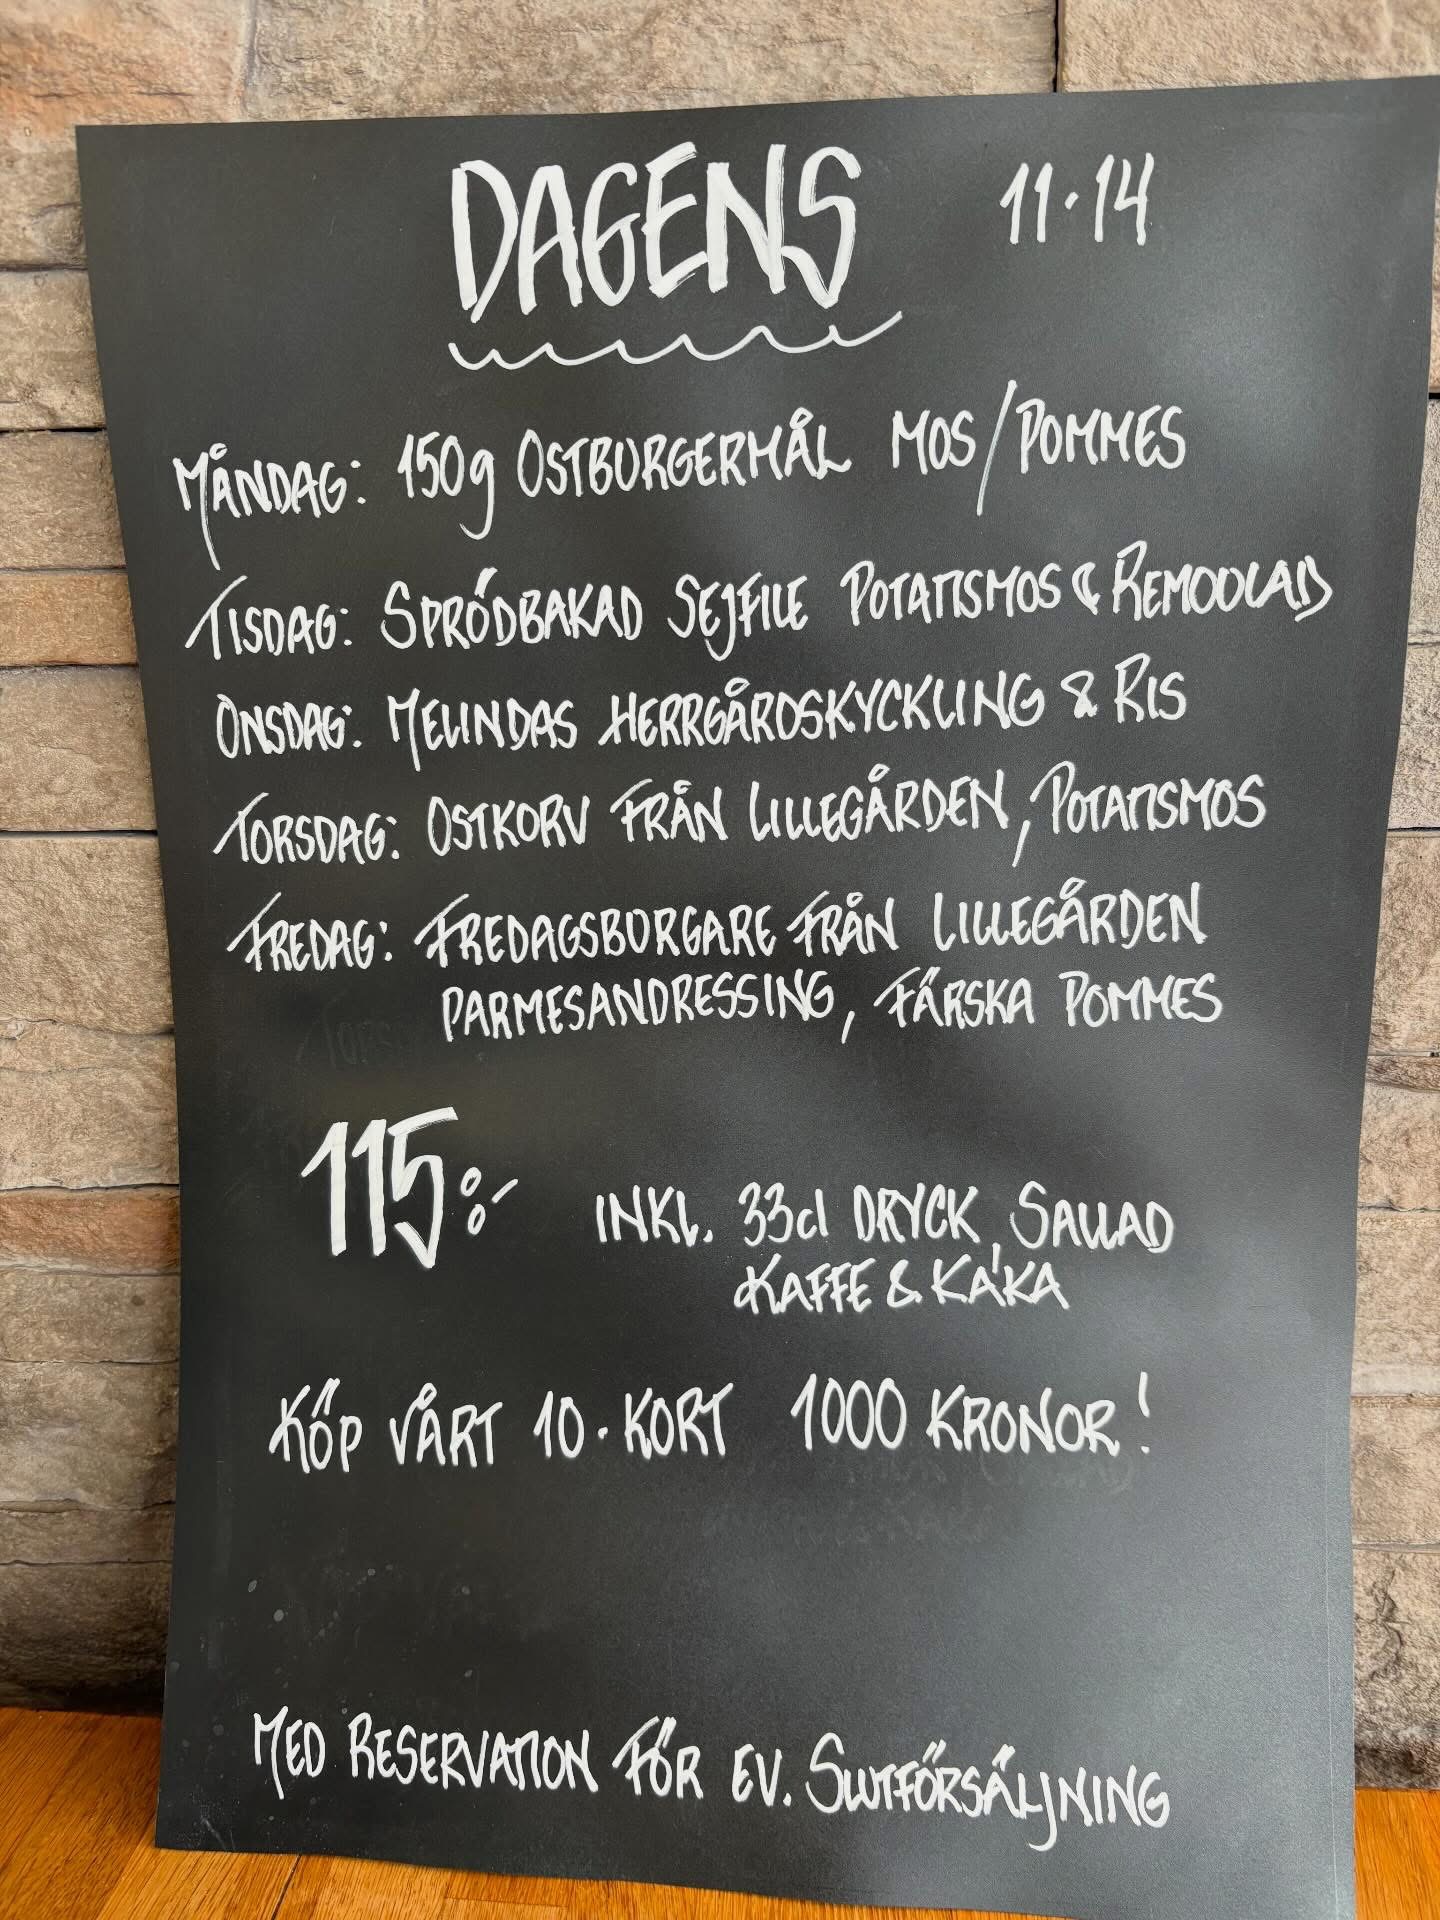 DAGENS 11-14
MÅNDAG: 150g OSTBURGERMÅL MOS/POMMES
TISDAG: SPRÖDBAKAD SEJFILE POTATISMOS & REMOULAD
ONSDAG: MELINDAS HERRGÅRDSKYCKLING & RIS
TORSDAG: OSTKORV FRÅN LILLEGÅRDEN, POTATISMOS
FREDAG: FREDAGSBURGARE FRÅN LILLEGÅRDEN
PARMESANDRESSING, FÄRSKA POMMES
115:- INKL. 33cl DRYCK, SALLAD
KAFFE & KAKA
KÖP VÅRT 10-KORT 1000 KRONOR!
MED RESERVATION FÖR EV. SLUTFÖRSÄLJNING